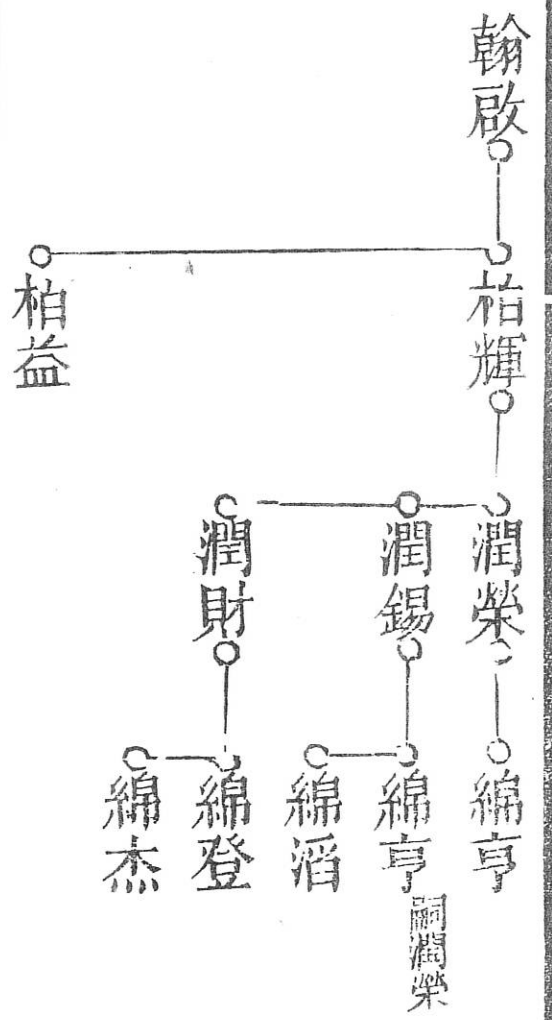 翰啟
柏輝
柏益
潤榮
潤錫
潤財
綿亨
綿亨
嗣潤榮
綿滔
綿登
綿杰